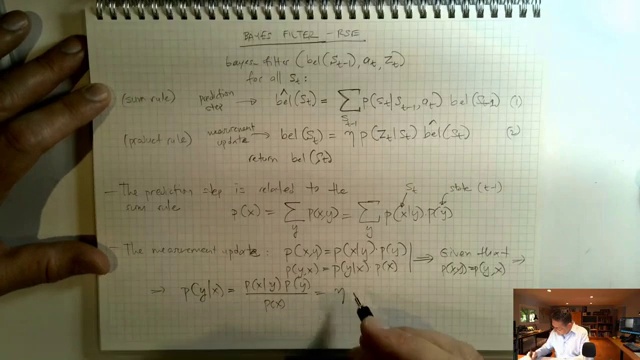 BAYES FILTER - RSE
bayes filter (bel(St-1), at, Zt)
for all St:
(sum rule) prediction step → bel̂(St) = Σ St-1 p(St|St-1, at) bel(St-1) (1)
(product rule) measurement update → bel(St) = η p(Zt|St) bel̂(St) (2)
return bel(St)
- The prediction step is related to the
sum rule
St state (t-1)
p(x) = Σy p(x,y) = Σy p(x|y)·p(y)
- The measurement update: p(x,y) = p(x|y)·p(y) ⟹ Given that ⟹
p(y,x) = p(y|x) p(x) p(x,y) = p(y,x)
⟹ p(y|x) = p(x|y) p(y) / p(x) = η